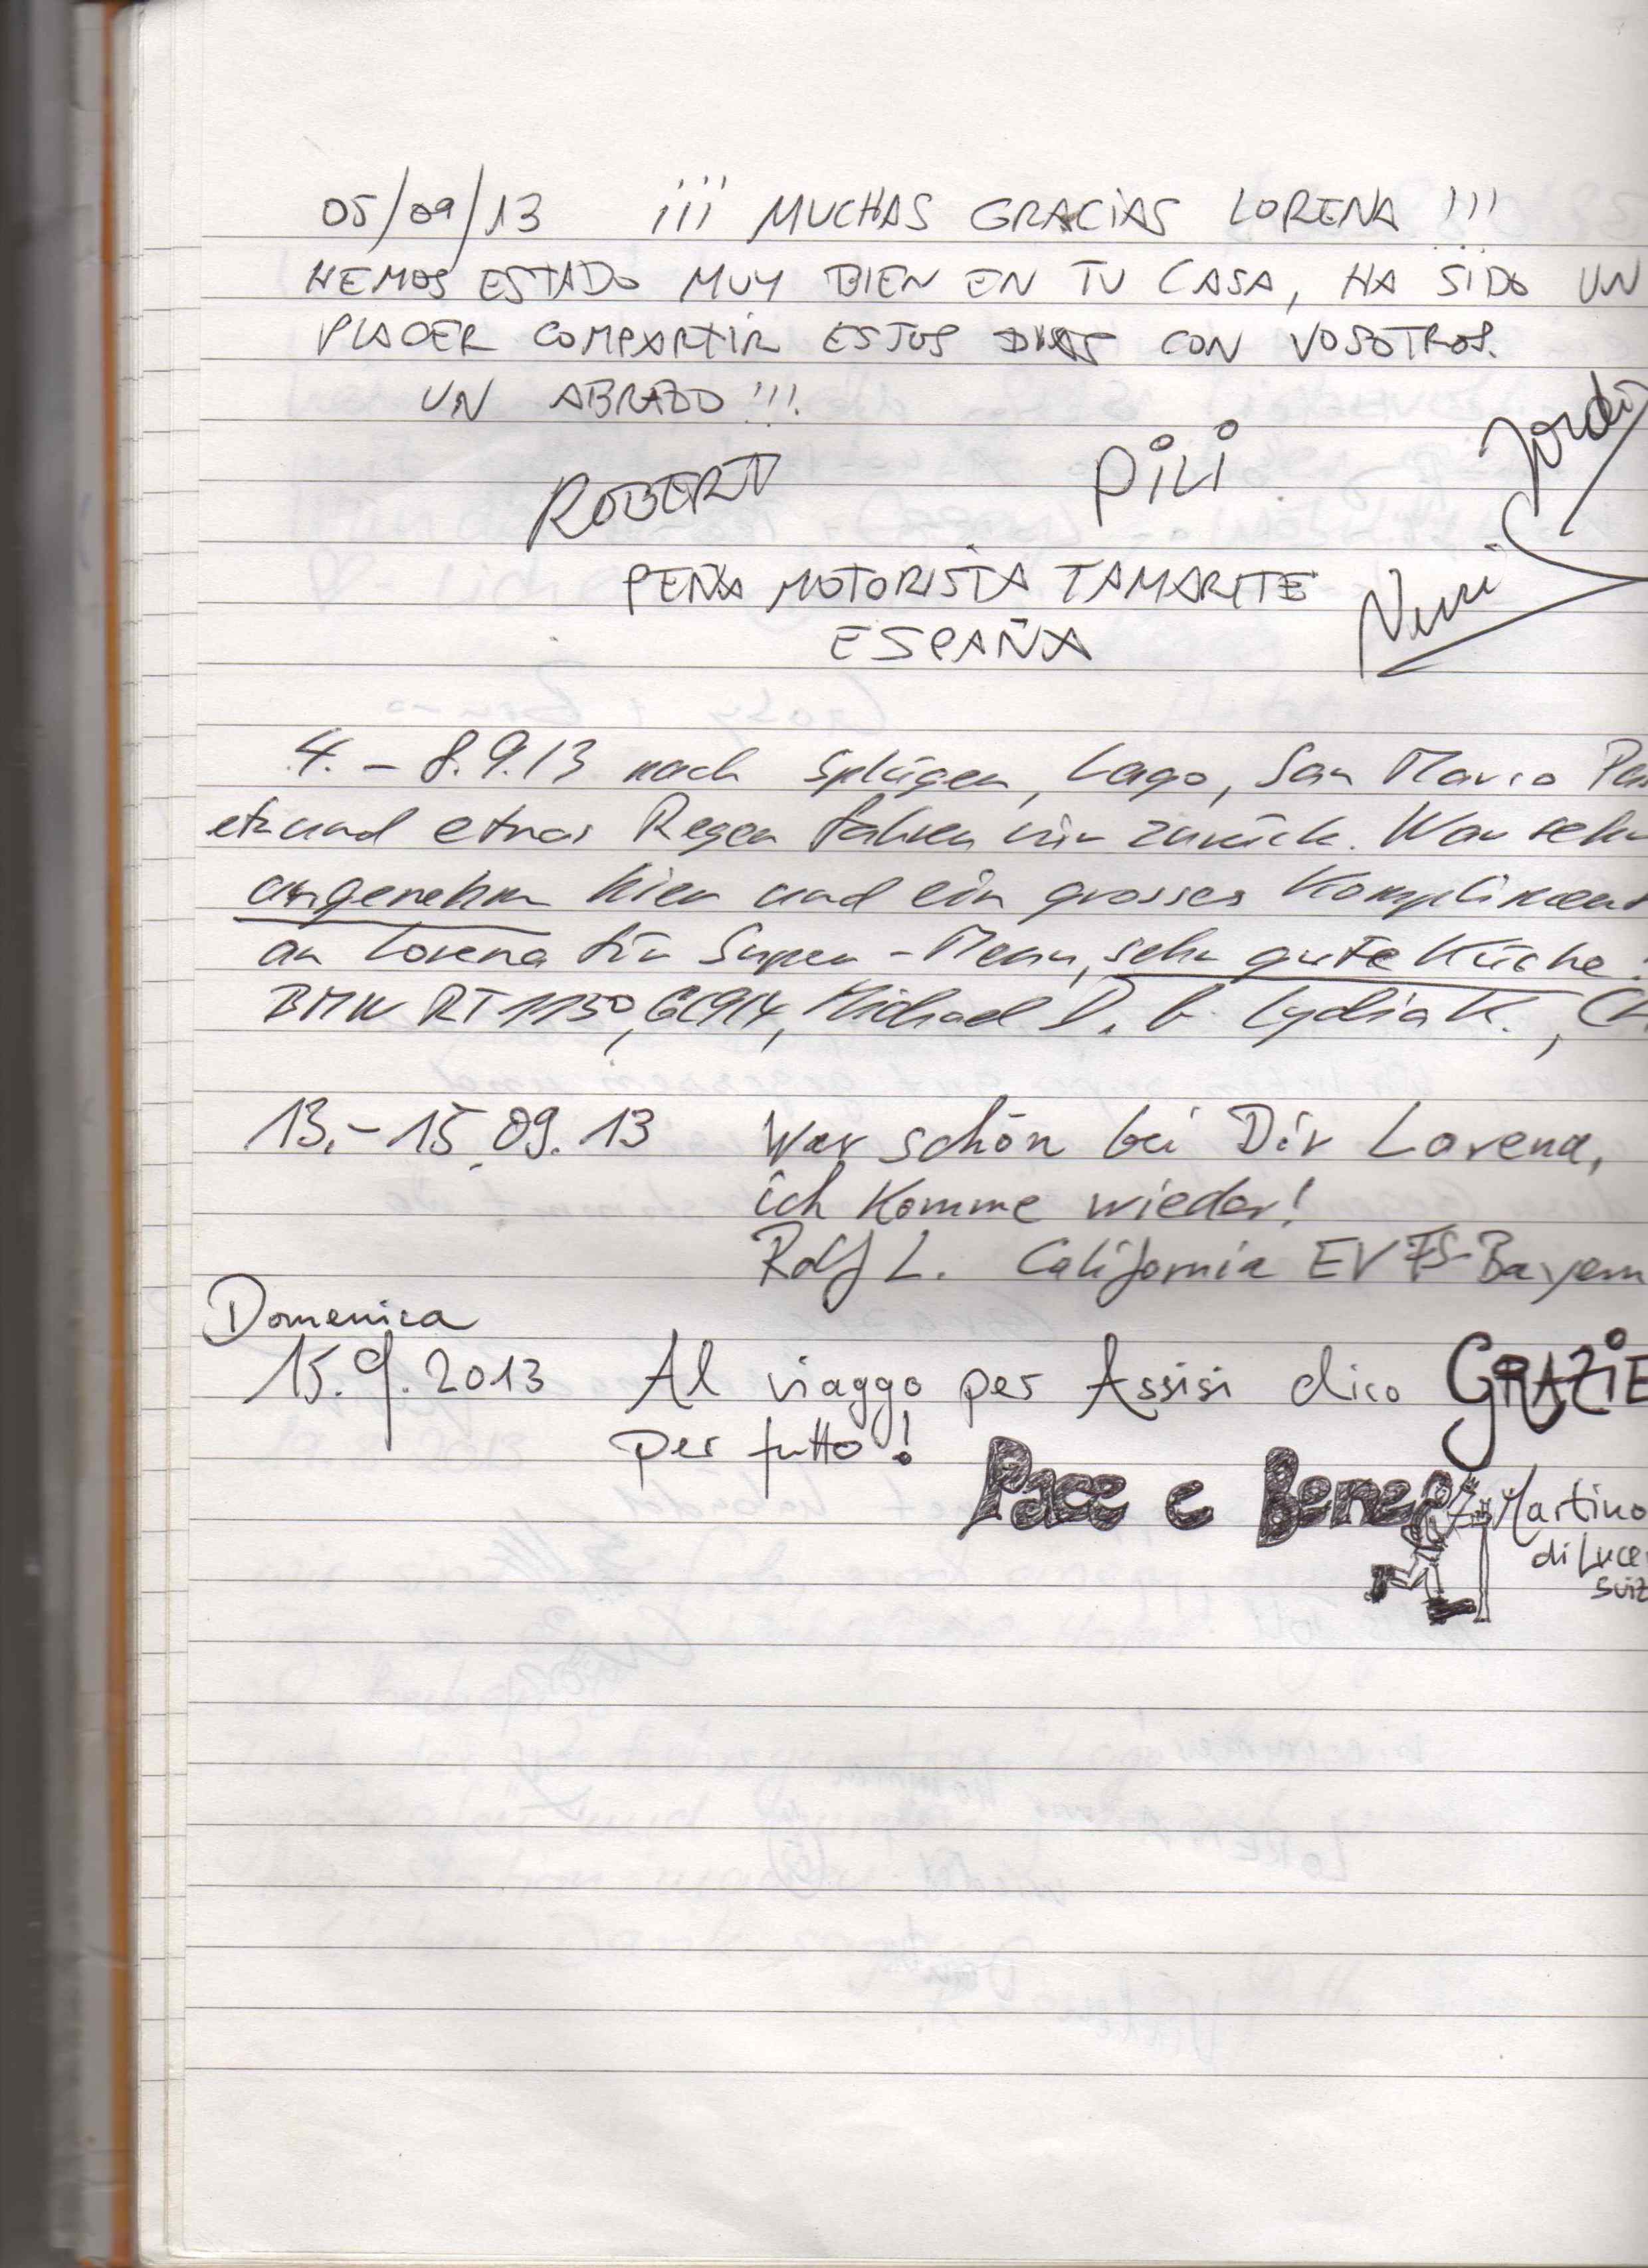 05/09/13 ¡¡¡ MUCHAS GRACIAS LORENA !!!
HEMOS ESTADO MUY BIEN EN TU CASA, HA SIDO UN
PLACER COMPARTIR ESTOS DIAS CON VOSOTROS.
UN ABRAZO !!!
Jordi
ROBERT PILI
PEÑA MOTORISTA TAMARITE
ESPAÑA
4. - 8.9.13 nach Splügen, Lago, San Marco
und etwas Regen fahren wir zurück. War sehr
angenehm hier und ein grosses Kompliment
an Lorena für Super-Menu, sehr gute Küche
BMW RT 1150, Michael D. Lydia K.,
13.-15.09.13 War schön bei Dir Lorena,
ich komme wieder!
Rolf L. California EV Bayern
Domenica
15.9.2013 Al viaggo per Assisi dico GRAZIE
per tutto!
Pace e Bene Martino
di Luce
Suiz